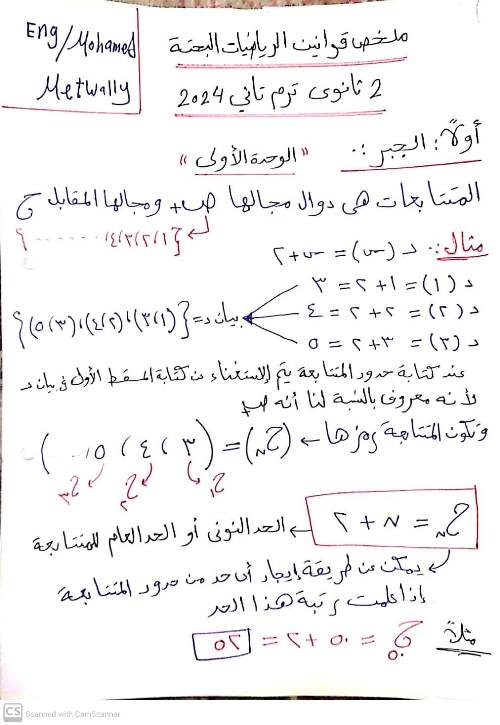 Eng/Mohamed
Metwally
ملخص قوانين الرياضيات البحتة
2 ثانوى ترم تاني 2024
أولاً: الجبر :. "الوحدة الأولى"
المتتابعات هى دوال مجالها ص+ ومجالها المقابل ح
{١،٢،٣،٤،.......}
مثال:. د (س) = س + ٢
د (١) = ١ + ٢ = ٣
د (٢) = ٢ + ٢ = ٤
د (٣) = ٣ + ٢ = ٥
بيان د = {(١،٣)،(٢،٤)،(٣،٥)}
عند كتابة حدود المتتابعة يتم الاستغناء عن كتابة المسقط الأول فى بيان د
لأنه معروف بالنسبة لنا أنه ص+
وتكون المتتابعة رمزها ← (ح ن) = (٣، ٤، ٥، ...)
ح١ ح٢ ح٣
ح ن = ن + ٢ ← الحد النونى أو الحد العام للمتتابعة
يمكن عن طريقة إيجاد أى حد من حدود المتتابعة
إذا علمت رتبة هذا الحد
مثلاً ح٥٠ = ٥٠ + ٢ = ٥٢
CS Scanned with CamScanner